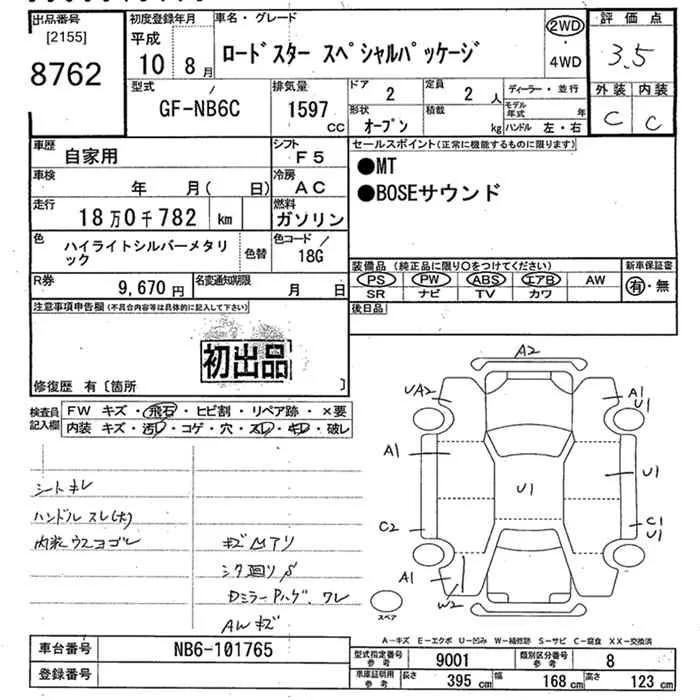 出品番号
[2155]
8762
初度登録年月
平成
10 8月
車名・グレード
ロードスター スペシャルパッケージ
2WD
・
4WD
評価点
3.5
外装 内装
C C
型式
GF-NB6C
排気量
1597
cc
ドア
2
定員
2 人
形状
オープン
積載
kg
ディーラー・並行
モデル年式 年
ハンドル 左・右
車歴
自家用
シフト
F5
車検
年 月( 日)
冷房
AC
走行
18万0千782 km
燃料
ガソリン
色
ハイライトシルバーメタリック
色替
色コード/
18G
R券
9,670円
名変通知期限
月 日
セールスポイント(正常に機能するものに限ります)
●MT
●BOSEサウンド
装備品(純正品に限り○をつけてください)
PS PW ABS エアB AW
SR ナビ TV カワ
新車保証書
有・無
後日品
注意事項申告欄(不具合内容等は具体的に記入して下さい)
初出品
修復歴 有〔箇所 〕
検査員記入欄
FW キズ・飛石・ヒビ割・リペア跡・×要
内装 キズ・汚レ・コゲ・穴・スレ・キレ・破レ
シートキレ
ハンドルスレ(大)
内装ウスヨゴレ
キズ凹アリ
シタ廻りS
Dミラー Pハゲ、ワレ
AWキズ
A2
UA2
A1
U1
A1
U1
U1
C2
C1
U1
A1
W2
スペア
A−キズ E−エクボ U−凹み W−補修跡 S−サビ C−腐食 XX−交換済
車台番号
NB6-101765
登録番号
型式指定番号
参考
9001
類別区分番号
参考
8
車庫証明用
参考
長さ
395 cm
幅
168 cm
高さ
123 cm